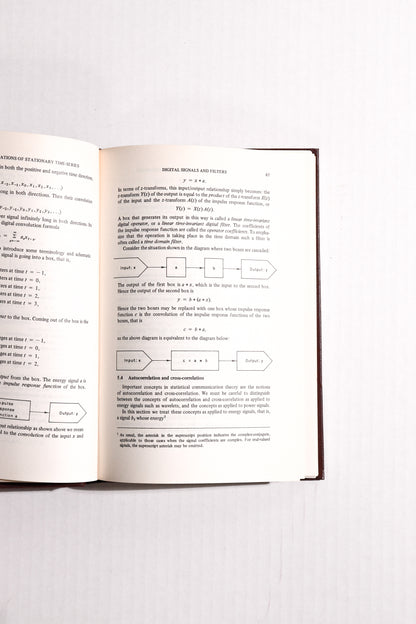 ATIONS OF STATIONARY TIME-SERIES
in both the positive and negative time direction,
ng in both directions. Then their convolution
er signal infinitely long in both directions. In
digital convolution formula
introduce some terminology and schematic
signal is going into a box, that is,
ters at time t = −1,
ters at time t = 0,
ters at time t = 1,
ters at time t = 2,
ters at time t = 3,
uter to the box. Coming out of the box is the
rges at time t = −1,
rges at time t = 0,
rges at time t = 1,
rges at time t = 2,
utput from the box. The energy signal a is
e impulse response function of the box.
pulse
sponse
nction a
Output: y
put relationship as shown above we must
l to the convolution of the input x and
DIGITAL SIGNALS AND FILTERS
67
y = x * a.
In terms of z-transforms, this input/output relationship simply becomes: the
z-transform Y(z) of the output is equal to the product of the z-transform X(z)
of the input and the z-transform A(z) of the impulse response function, or
Y(z) = X(z) A(z).
A box that generates its output in this way is called a linear time-invariant
digital operator, or a linear time-invariant digital filter. The coefficients of
the impulse response function are called the operator coefficients. To empha-
size that the operation is taking place in the time domain such a filter is
often called a time domain filter.
Consider the situation shown in the diagram where two boxes are cascaded:
Input: x
a
b
Output: y
The output of the first box is a * x, which is the input to the second box.
Hence the output of the second box is
y = b * (a * x).
Hence the two boxes may be replaced with one box whose impulse response
function c is the convolution of the impulse response functions of the two
boxes, that is
c = b * a,
so the above diagram is equivalent to the diagram below:
Input: x
c = a * b
Output: y
5.4 Autocorrelation and cross-correlation
Important concepts in statistical communication theory are the notions
of autocorrelation and cross-correlation. We must be careful to distinguish
between the concepts of autocorrelation and cross-correlation as applied to
energy signals such as wavelets, and the concepts as applied to power signals.
In this section we treat these concepts as applied to energy signals, that is,
a signal bt whose energy
As usual, the asterisk in the superscript position indicates the complex-conjugate,
applicable to those cases when the signal coefficients are complex. For real-valued
signals, the superscript asterisk may be omitted.